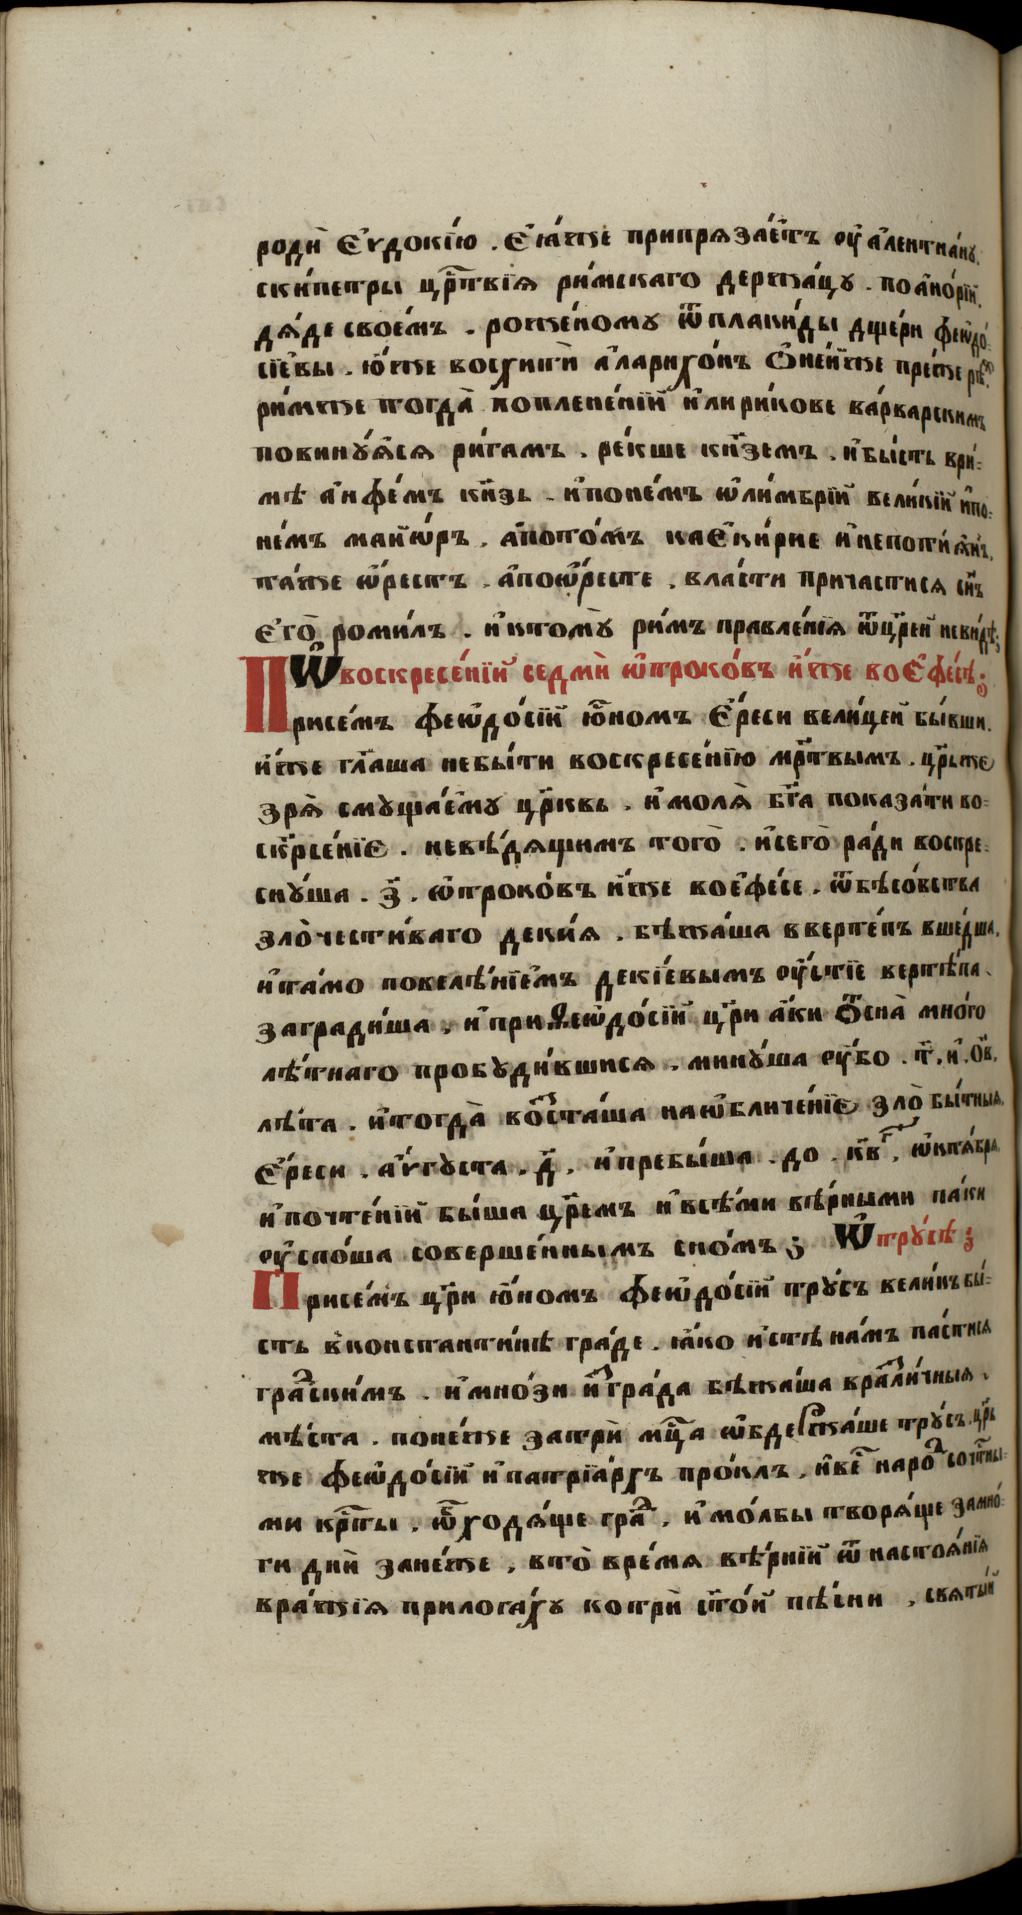 родѝ Е҆ѵдокі́ю . Е҆ꙗ́же припрѧза́етъ ѹ҆ а҆лентиа́нꙋ.
ски́петры цр҃твіѧ ри́мскаго держа́цꙋ . по а҆но́рїи,
дѧ́де свое́мъ . роже́номꙋ ѿ плаки́ды дщери феѡдо́-
сїевы . ю҆́же восхитѝ а҆ларихо́нъ Ѻ҆ не́йже пре́же рѣ.
ри́мже тогда̀ поплене́нїй и҆ли ри́кове ва́рварскимъ
повинꙋ́ѧсѧ ри́гамъ . ре́кше кн҃земъ . и҆ бы́сть в ри́-
мѣ а҆нфе́мъ кн҃зь . и҆ по не́мъ ѡ҆ли́мврїй вели́кїй и҆ по-
не́мъ майѡ́ръ . а҆ пото́мъ каЕ҆ ки́рие и҆ непотиѧ́нъ,
та́же ѡ҆ре́стъ . а҆ по ѡ҆ре́сте . вла́сти причастисѧ сн҃ъ
е҆го̀ роми́лъ . и҆ ктомꙋ̀ ри́мъ правле́нїѧ ѿ цр҃ей не ви́дѣ;
Ѡ҆ воскресе́нїй седмѝ ѡ҆троко́въ и҆́же во Е҆фе́сѣ;
При се́мъ феѡдо́сїй ю҆́номъ Е҆́реси вели́цей бы́вши.
и҆́же гл҃аша не бы́ти воскресе́нїю мр҃твымъ . цр҃ьже
зрѧ̀ смꙋща́емꙋ цр҃ковь . и҆ молѧ̀ бг҃а показа́ти во-
скр҃се́нїе . не вѣ́дѧщимъ того̀ . и҆ сего̀ ра́ди воскре-
снꙋ́ша . з҃ . ѡ҆троко́въ и҆́же во е҆фе́се . ѿ бѣсо́вства
злочести́ваго деки́ѧ . бѣжа́ша в верте́пъ вше́дша,
и҆ та́мо повелѣ́нїемъ декїевымъ ѹ҆́стїе вертѣ́па.
загради́ша . и҆ при Ѳеѡдо́сїй цр҃и а҆́ки Ѿ сна̀ мно́го
лѣ́тнаго пробꙋди́вшисѧ . минꙋ́ша ѹ҆́бо . т҃ . и҆ . ѻ҃в,
лѣ́та . и҆ тогда̀ воста́ша на ѡ҆бличе́нїе злобы́тныѧ,
Е҆́реси . а҆́ѵгꙋста . д҃ . и҆ пребы́ша . до . к҃в, ѡ҆ктѧ́брѧ
и҆ почте́нїй бы́ша цр҃емъ и҆ всѣ́ми вѣ́рными па́ки
ѹ҆спо́ша соверше́ннымъ сно́мъ ; Ѡ҆ трꙋ́сѣ ;
При се́мъ цр҃и ю҆́номъ феѡдо́сїй трꙋ́съ вели́къ бы́-
сть в константи́нѣ гра́де . ꙗ҆́ко и҆ стѣна́мъ па́стисѧ
градски́мъ . и҆ мно́зи и҆з гра́да бѣжа́ша в разли́чныѧ,
мѣ́ста . поне́же за трѝ мц҃а ѡ҆бдержа́ше трꙋ́съ. цр҃ь
же феѡдо́сїй и҆ патрїа́рхъ про́клъ . и҆ ве́сь наро́дъ со чтны́-
ми кр҃ты . ѿходѧ́ще гра́д, и҆ мо́лбы творѧ́ще за мно́-
ги дни̑ зане́же . в то̀ вре́мѧ вѣ́рнїй ѿ настоѧ́нїѧ
вра́жїѧ прилога́хꙋ ко три̑ ст҃о́й пѣ́сни , свѧты́й